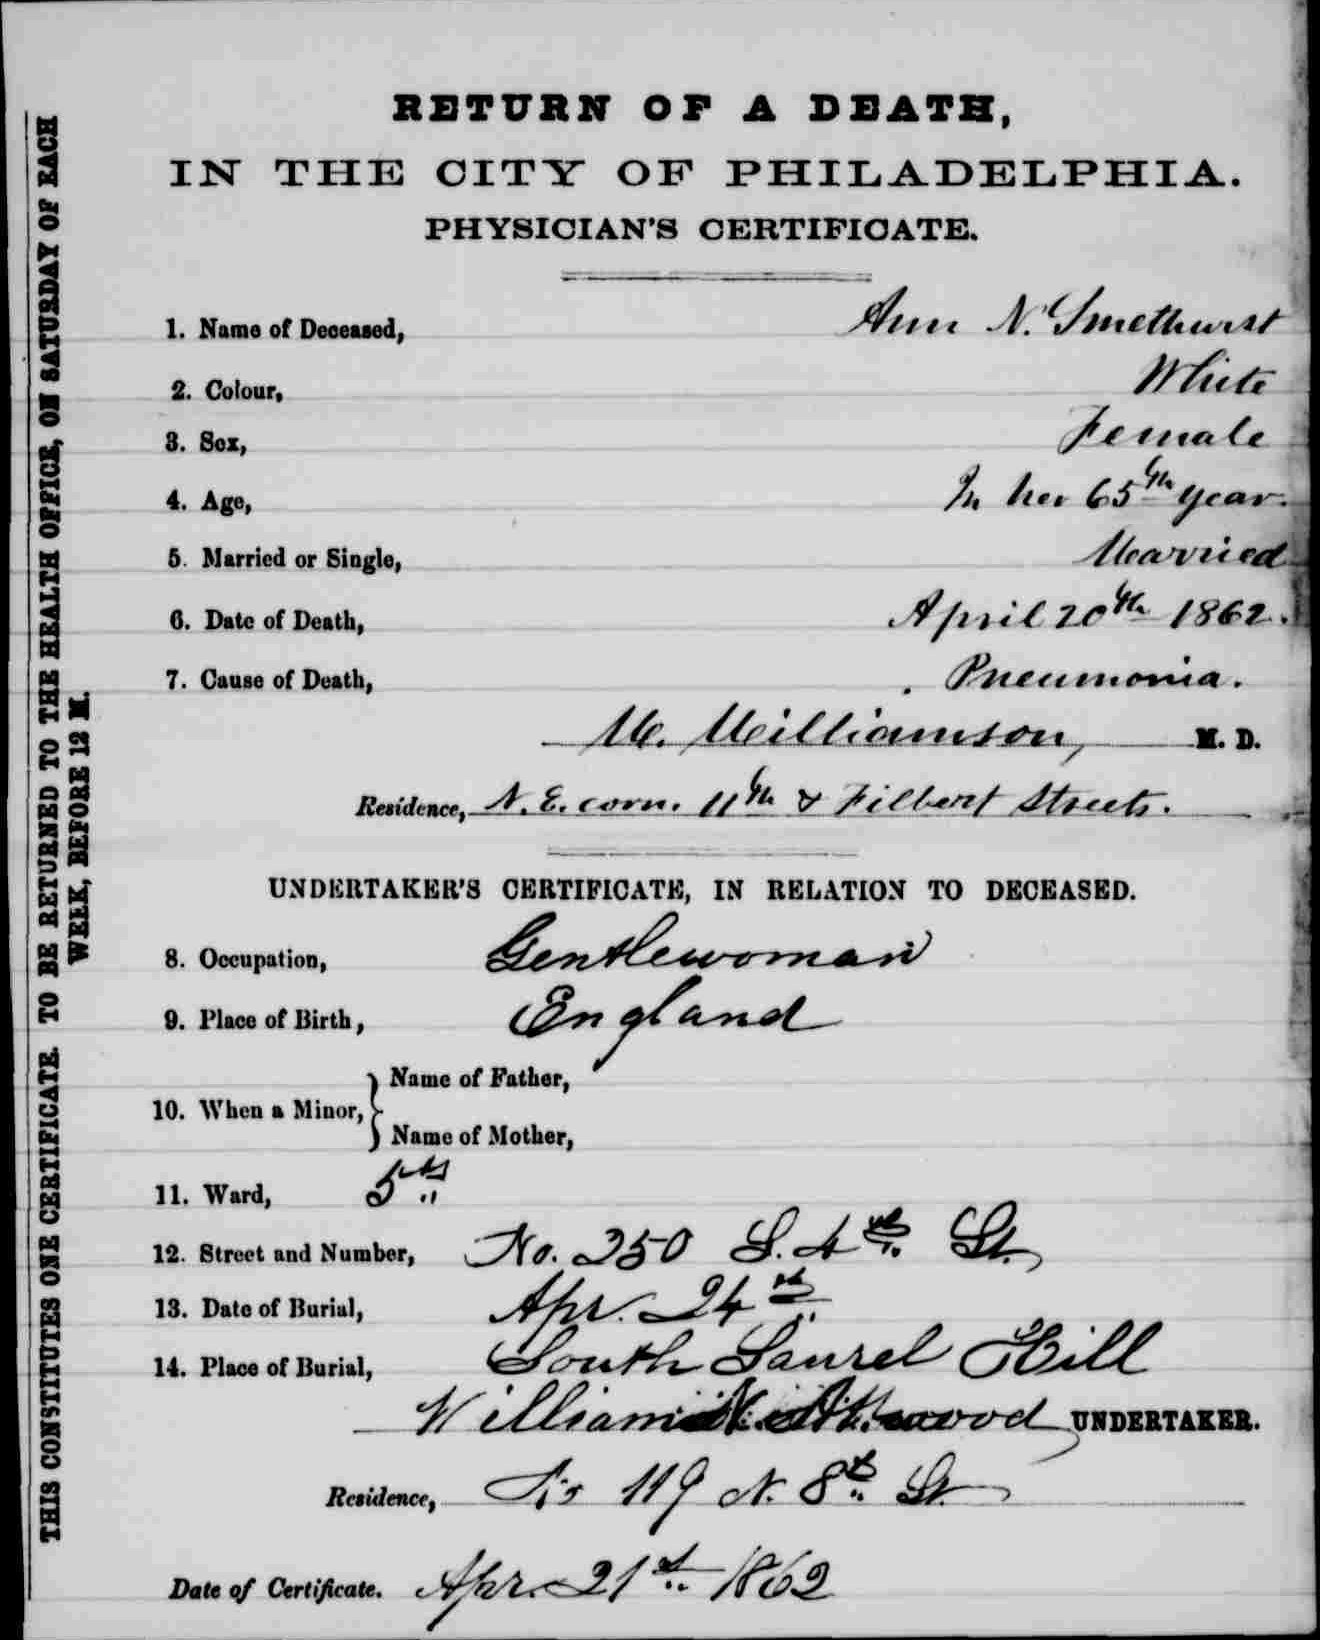 RETURN OF A DEATH,
IN THE CITY OF PHILADELPHIA.
PHYSICIAN'S CERTIFICATE.
1. Name of Deceased, Ann N. Smethurst
2. Colour, White
3. Sex, Female
4. Age, In her 65th year.
5. Married or Single, Married
6. Date of Death, April 20th 1862.
7. Cause of Death, Pneumonia.
M. Williamson, M. D.
Residence, N. E. corn. 11th & Filbert Streets.
UNDERTAKER'S CERTIFICATE, IN RELATION TO DECEASED.
8. Occupation, Gentlewoman
9. Place of Birth, England
10. When a Minor, Name of Father,
Name of Mother,
11. Ward, 5th
12. Street and Number, No. 250 S. 4th St.
13. Date of Burial, Apr. 24th
14. Place of Burial, South Laurel Hill
William N. Attwood UNDERTAKER.
Residence, No 119 N. 8th St.
Date of Certificate. Apr. 21st 1862
THIS CONSTITUTES ONE CERTIFICATE. TO BE RETURNED TO THE HEALTH OFFICE, ON SATURDAY OF EACH
WEEK, BEFORE 12 M.